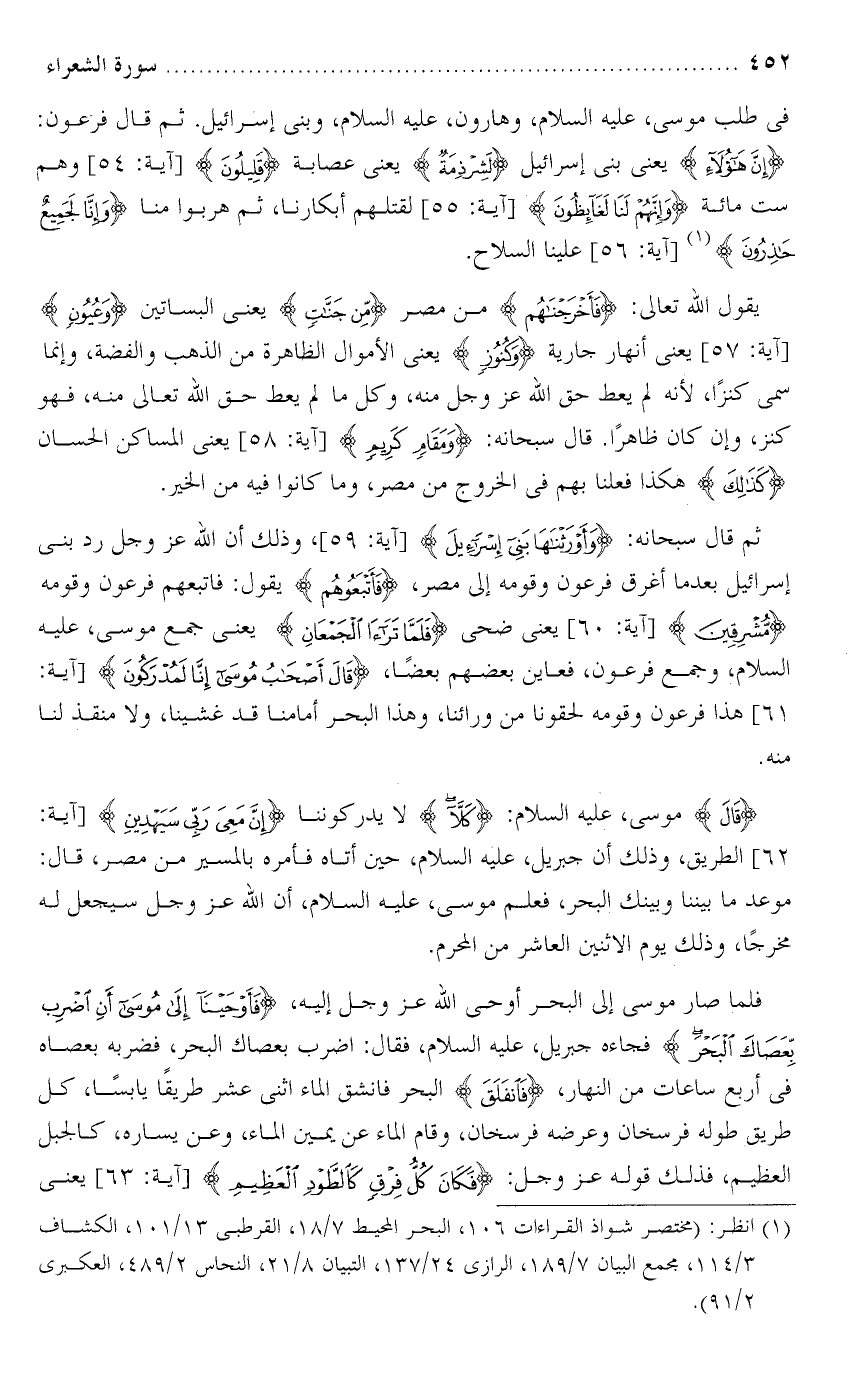 ٤٥٢ ........................................................................ سورة الشعراء
فى طلب موسى، عليه السلام، وهارون، عليه السلام، وبنى إسرائيل. ثم قال فرعون:
﴿إِنَّ هَٰٓؤُلَآءِ﴾ يعنى بنى إسرائيل ﴿لَشِرْذِمَةٌ﴾ يعنى عصابة ﴿قَلِيلُونَ﴾ [آية: ٥٤] وهم
ست مائة ﴿وَإِنَّهُمْ لَنَا لَغَآئِظُونَ﴾ [آية: ٥٥] لقتلهم أبكارنا، ثم هربوا منا ﴿وَإِنَّا لَجَمِيعٌ
حَٰذِرُونَ﴾(١) [آية: ٥٦] علينا السلاح.
يقول الله تعالى: ﴿فَأَخْرَجْنَٰهُم﴾ من مصر ﴿مِّن جَنَّٰتٍ﴾ يعنى البساتين ﴿وَعُيُونٍ﴾
[آية: ٥٧] يعنى أنهار جارية ﴿وَكُنُوزٍ﴾ يعنى الأموال الظاهرة من الذهب والفضة، وإنما
سمى كنزًا، لأنه لم يعط حق الله عز وجل منه، وكل ما لم يعط حق الله تعالى منه، فهو
كنز، وإن كان ظاهرًا. قال سبحانه: ﴿وَمَقَامٍ كَرِيمٍ﴾ [آية: ٥٨] يعنى المساكن الحسان
﴿كَذَٰلِكَ﴾ هكذا فعلنا بهم فى الخروج من مصر، وما كانوا فيه من الخير.
ثم قال سبحانه: ﴿وَأَوْرَثْنَٰهَا بَنِىٓ إِسْرَٰٓءِيلَ﴾ [آية: ٥٩]، وذلك أن الله عز وجل رد بنى
إسرائيل بعدما أغرق فرعون وقومه إلى مصر، ﴿فَأَتْبَعُوهُم﴾ يقول: فاتبعهم فرعون وقومه
﴿مُّشْرِقِينَ﴾ [آية: ٦٠] يعنى ضحى ﴿فَلَمَّا تَرَٰٓءَا ٱلْجَمْعَانِ﴾ يعنى جمع موسى، عليه
السلام، وجمع فرعون، فعاين بعضهم بعضًا، ﴿قَالَ أَصْحَٰبُ مُوسَىٰٓ إِنَّا لَمُدْرَكُونَ﴾ [آية:
٦١] هذا فرعون وقومه لحقونا من ورائنا، وهذا البحر أمامنا قد غشينا، ولا منقذ لنا
منه.
﴿قَالَ﴾ موسى، عليه السلام: ﴿كَلَّآ ۖ﴾ لا يدركوننا ﴿إِنَّ مَعِىَ رَبِّى سَيَهْدِينِ﴾ [آية:
٦٢] الطريق، وذلك أن جبريل، عليه السلام، حين أتاه فأمره بالمسير من مصر، قال:
موعد ما بيننا وبينك البحر، فعلم موسى، عليه السلام، أن الله عز وجل سيجعل له
مخرجًا، وذلك يوم الاثنين العاشر من المحرم.
فلما صار موسى إلى البحر أوحى الله عز وجل إليه، ﴿فَأَوْحَيْنَآ إِلَىٰ مُوسَىٰٓ أَنِ ٱضْرِب
بِّعَصَاكَ ٱلْبَحْرَ ۖ﴾ فجاءه جبريل، عليه السلام، فقال: اضرب بعصاك البحر، فضربه بعصاه
فى أربع ساعات من النهار، ﴿فَٱنفَلَقَ﴾ البحر فانشق الماء اثنى عشر طريقًا يابسًا، كل
طريق طوله فرسخان وعرضه فرسخان، وقام الماء عن يمين الماء، وعن يساره، كالجبل
العظيم، فذلك قوله عز وجل: ﴿فَكَانَ كُلُّ فِرْقٍ كَٱلطَّوْدِ ٱلْعَظِيمِ﴾ [آية: ٦٣] يعنى
(١) انظر: (مختصر شواذ القراءات ١٠٦، البحر المحيط ١٨/٧، القرطبى ١٠١/١٣، الكشاف
١١٤/٣، مجمع البيان ١٨٩/٧، الرازى ١٣٧/٢٤، التبيان ٢١/٨، النحاس ٤٨٩/٢، العكبرى
٩١/٢).